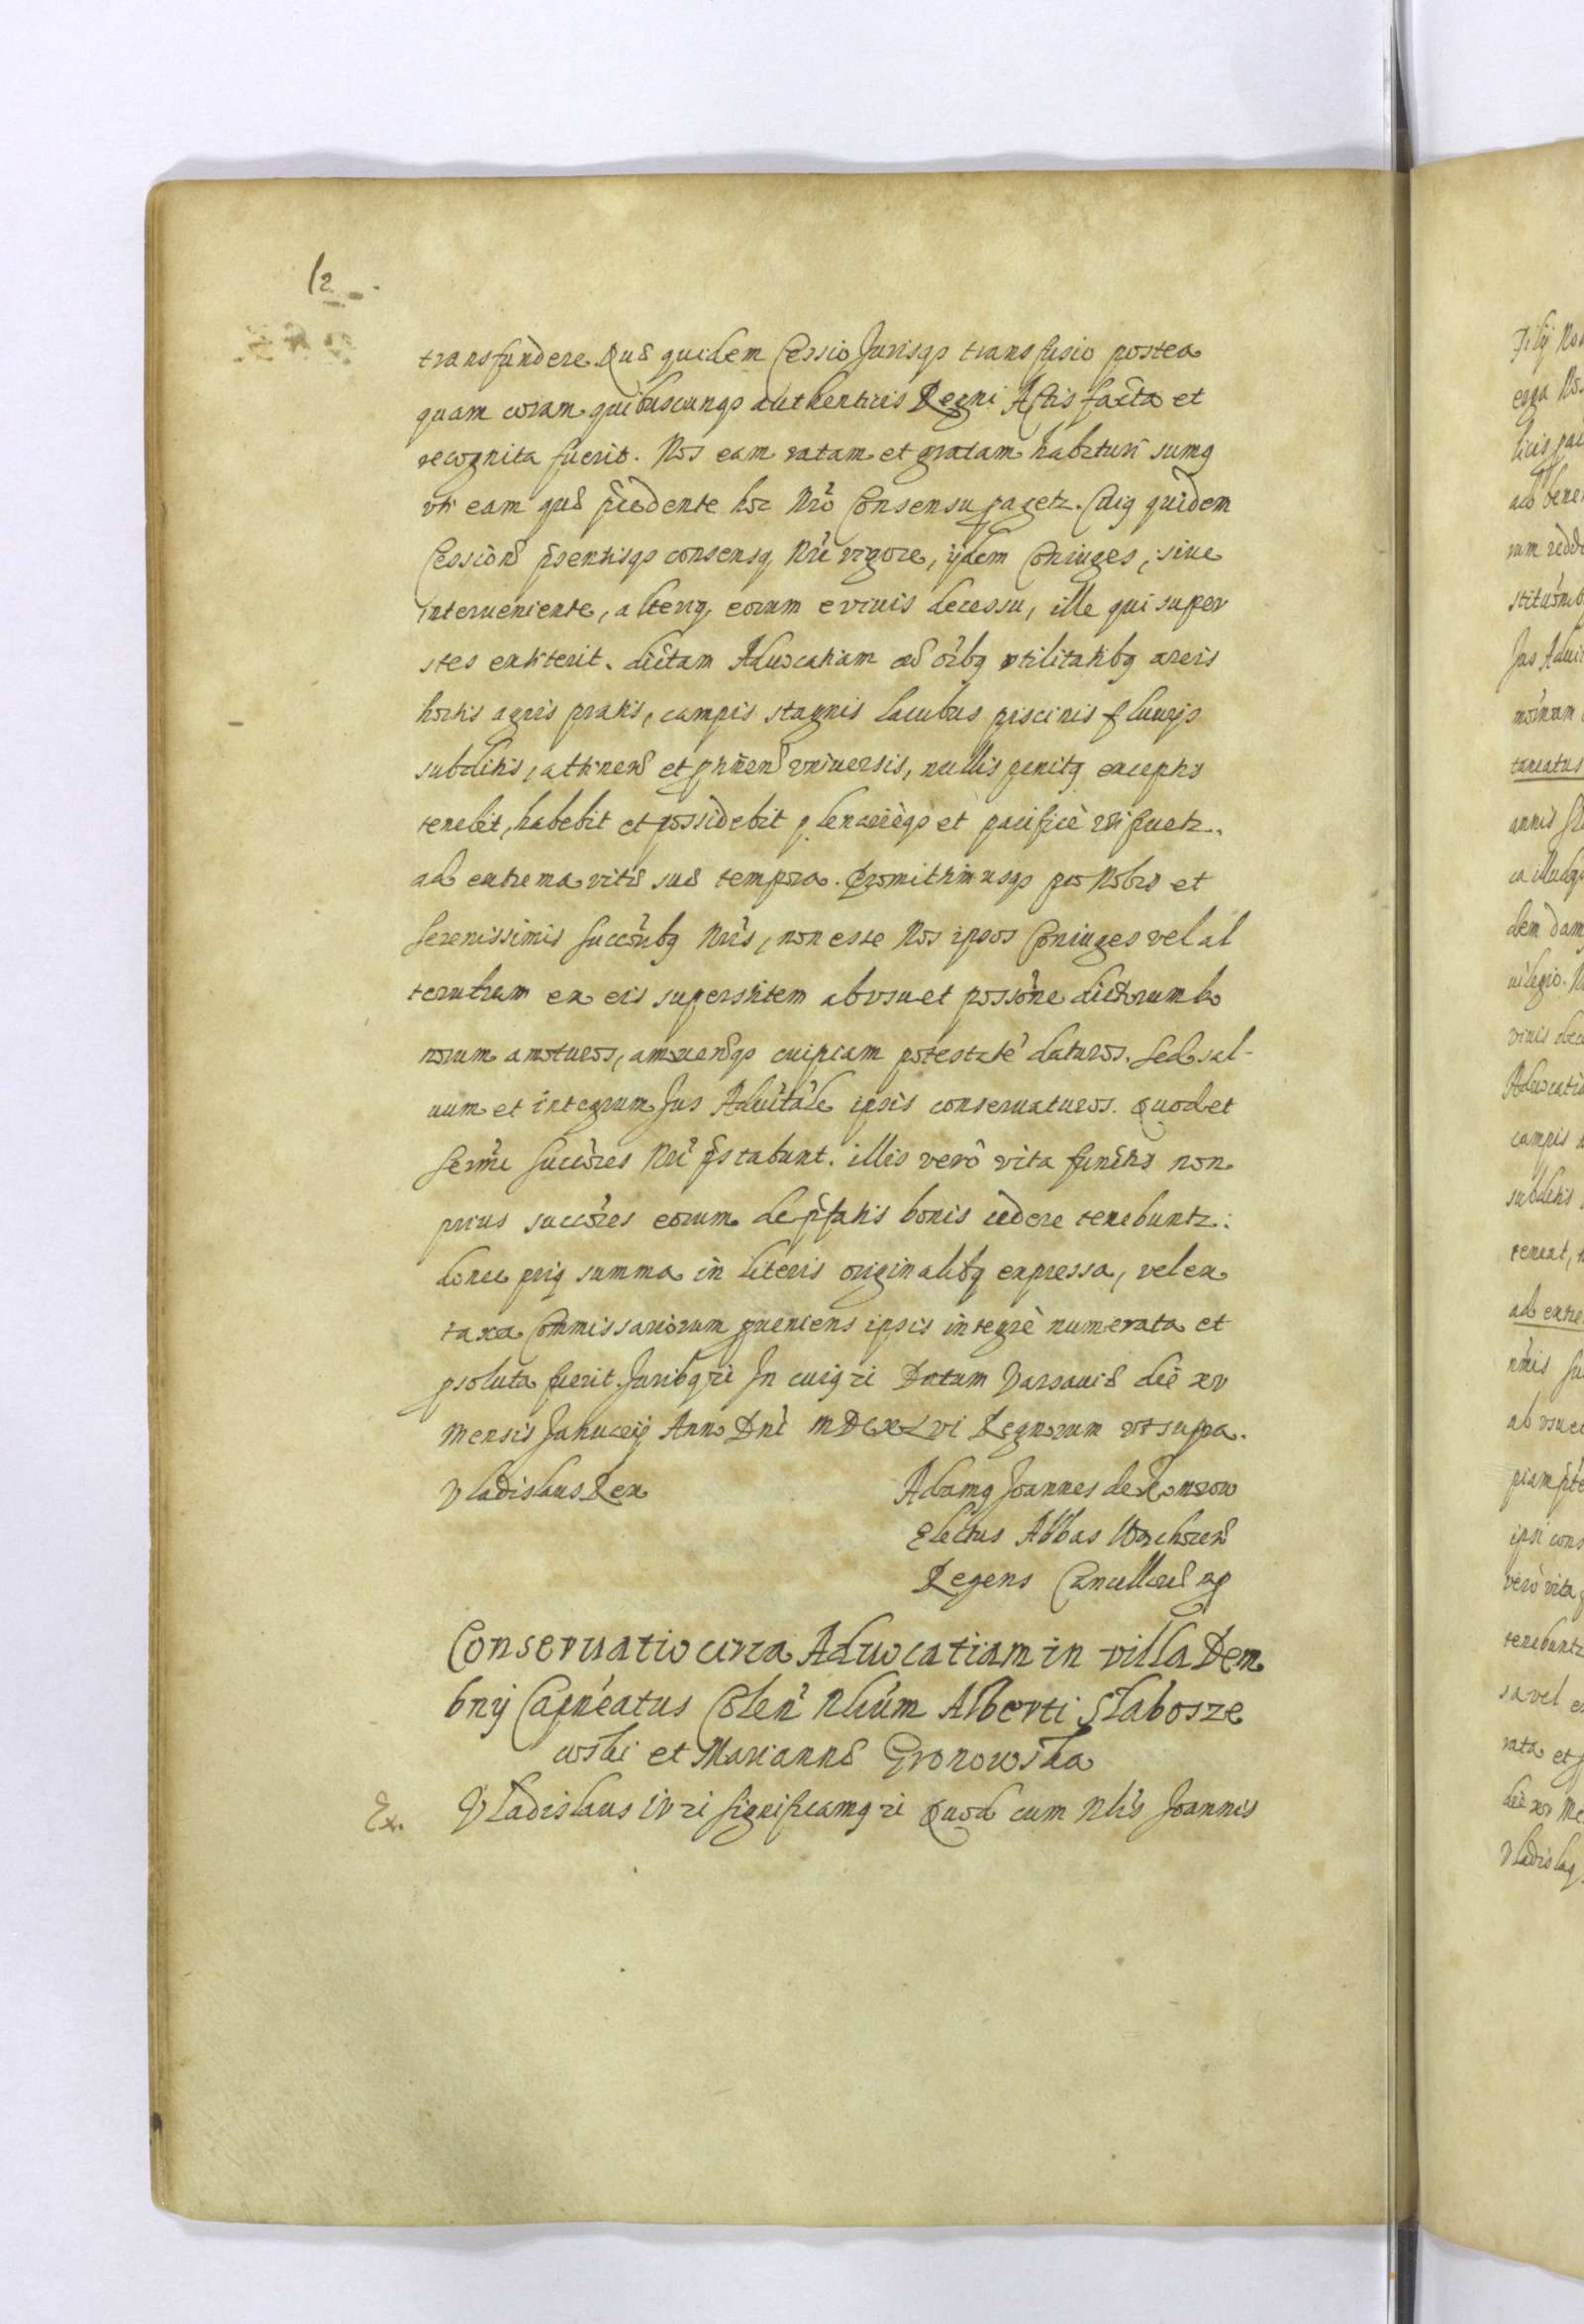 12
transfundere. Quae quidem Cessio Jurisq3 transfusio postea
quam coram quibuscunq3 authenticis Regni Actis facta et
recognita fuerit. Nos eam ratam et gratam habituri sumq
vti eam quae praecedente hoc Nrō Consensu Cuiq quidem
Cessionis psentisq3 consensq Nri vigore, ijdem Coniuges, siue
interueniente, alteriq eorum e viuis decessu, ille qui super
stes extiterit. dictam Aduocatiam cū oībq vtilitatibq areis
hortis agris pratis, campis stagnis lacubus piscinis fluuijs
subditis, attinen et ptinen vniuersis, nullis penitq exceptis
tenebit, habebit et possidebit plenarieq3 et pacifice vtifruetr.
ad extrema vitae suae tempora. Promittimusq3 pro Nobis et
Serenissimis Succōribq Nrīs, non esse Nos ipsos Coniuges vel al
terutrum ex eis superstitem ab vsu et possōne dictorum bo
norum amoturos, amouendiq3 cuipiam potestatē daturos. Sed sal-
uum et integrum Jus Aduitale ipsis conseruaturos. Quod et
Sermi Succōres Nrī pstabunt. illis vero vita functis non
prius succōres eorum de pfatis bonis cedere tenebuntr:
donec priq summa in literis originalibq expressa, vel ex
taxa Commissariorum pueniens ipsis integre numerata et
psoluta fuerit. Juribq ri In cuiq ri Datum Varsauiae die xv
mensis Januarij Anno Dni MDCXLVI Regnorum vt supra.
Vladislaus Rex Adamq Joannes de Komorow
Electus Abbas Wąchocen
Regens Cancellariae mp
Conseruatio circa Aduocatiam in villa Dem
bnij Capneatus Colen Nlium Alberti Slabosze
wski et Mariannae Gronowska
Ex. Vladislaus IV ri significamq ri Quod cum Nlis Joannis